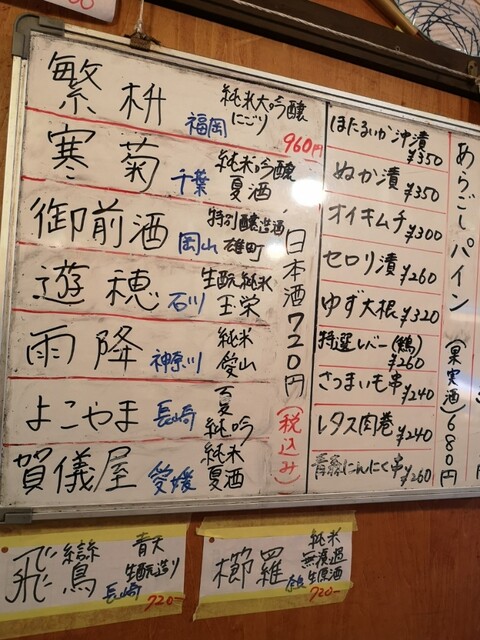 繁枡 福岡 純米大吟醸 にごり 960円
寒菊 千葉 純米吟醸 夏酒
御前酒 岡山 特別醸造酒 雄町
遊穂 石川 生酛純米 玉栄
雨降 神奈川 純米 愛山
よこやま 長崎 夏 純吟
賀儀屋 愛媛 純米 夏酒
日本酒720円(税込み)
ほたるいか沖漬 ¥350
ぬか漬 ¥350
オイキムチ ¥300
セロリ漬 ¥260
ゆず大根 ¥320
特選レバー(鶏) ¥260
さつまいも串 ¥240
レタス肉巻 ¥240
にんにく串 ¥260
あらごしパイン(果実酒)680円
飛鸞 長崎 青天 生酛造り 720-
櫛羅 純米 無濾過 生原酒 720-